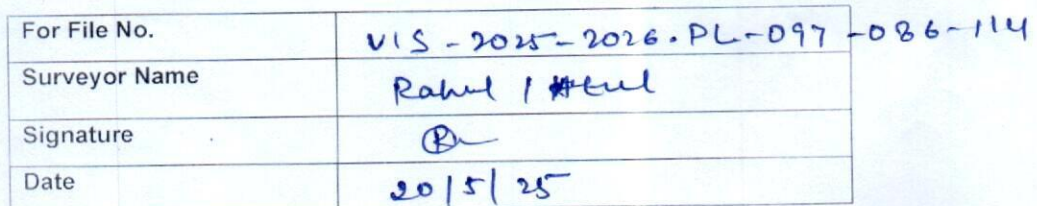 For File No. VIS-2025-2026.PL-097-086-114
Surveyor Name Rahul / Atul
Signature
Date 20/5/25